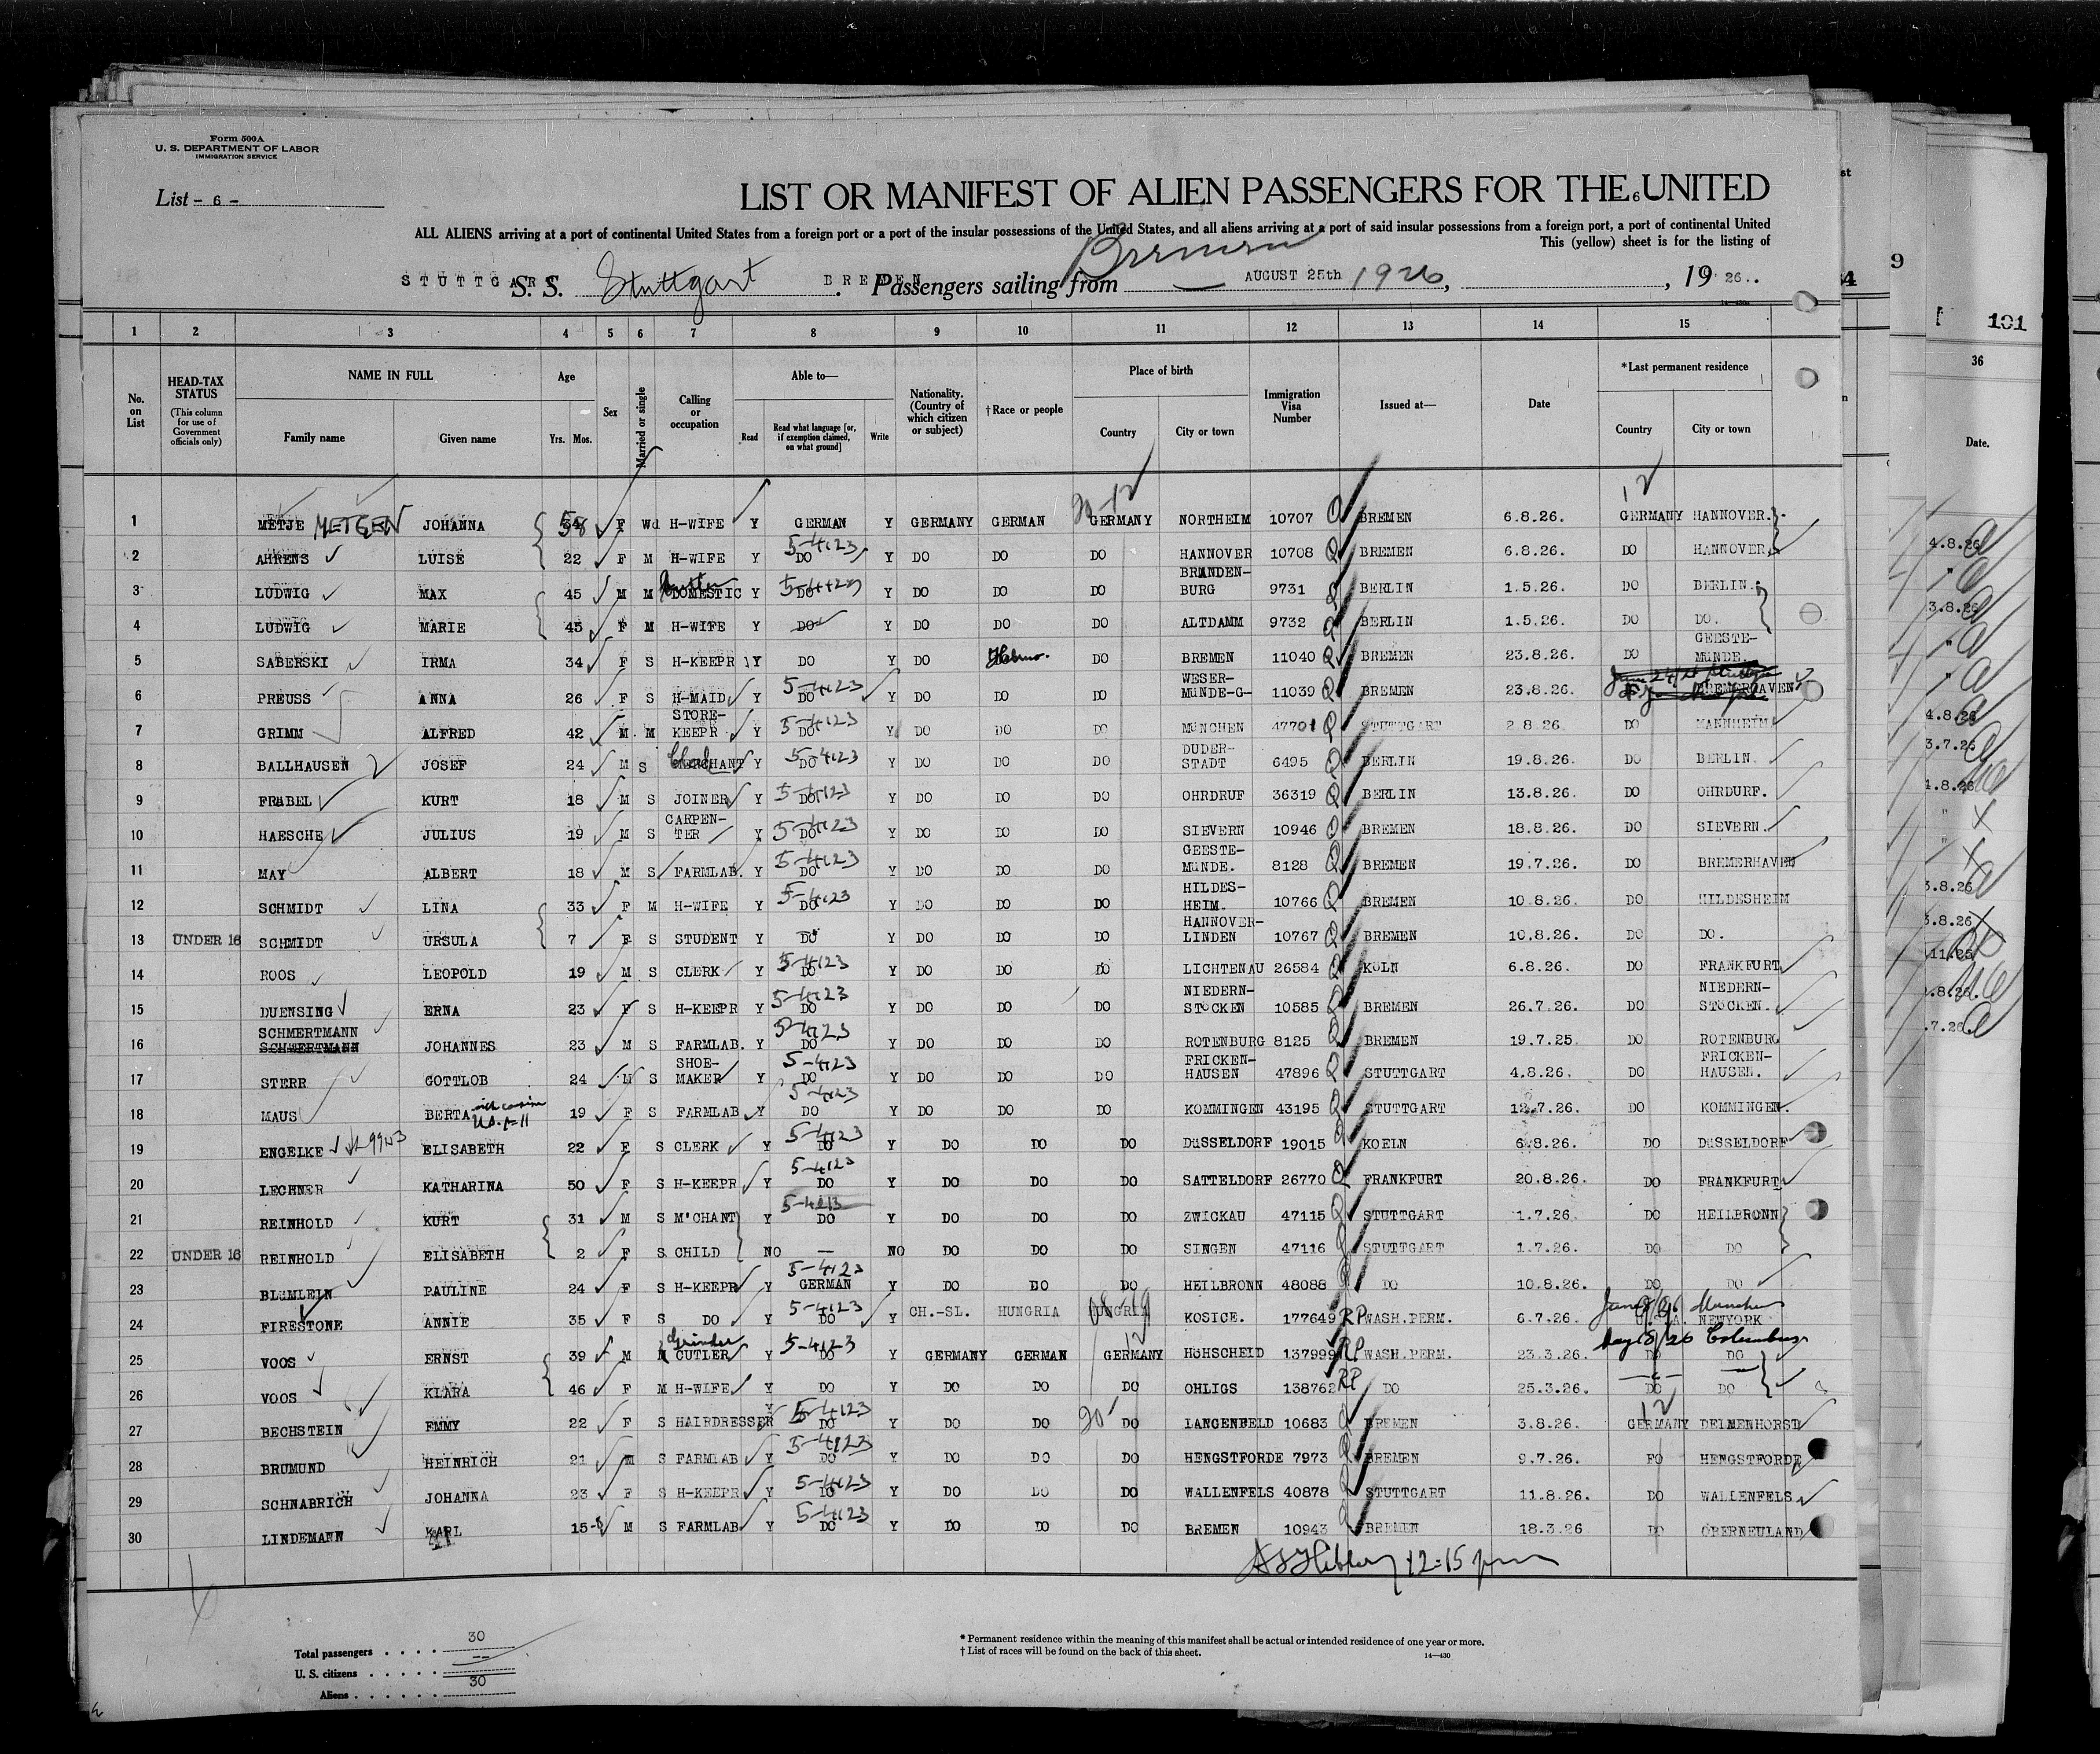 Form 500A
U. S. DEPARTMENT OF LABOR
IMMIGRATION SERVICE
List - 6 -
LIST OR MANIFEST OF ALIEN PASSENGERS FOR THE 6 UNITED
ALL ALIENS arriving at a port of continental United States from a foreign port or a port of the insular possessions of the United States, and all aliens arriving at a port of said insular possessions from a foreign port, a port of continental United
This (yellow) sheet is for the listing of
STUTTGART S. S. Stuttgart BREMEN. Passengers sailing from Bremen AUGUST 25th 1926, , 19 26..
1 2 3 4 5 6 7 8 9 10 11 12 13 14 15
No. on List
HEAD-TAX STATUS (This column for use of Government officials only)
NAME IN FULL Family name Given name
Age Yrs. Mos.
Sex
Married or single
Calling or occupation
Able to— Read Read what language [or, if exemption claimed, on what ground] Write
Nationality. (Country of which citizen or subject)
†Race or people
Place of birth Country City or town
Immigration Visa Number
Issued at—
Date
*Last permanent residence Country City or town
1 METJE METGEN JOHANNA 58 F Wd H-WIFE Y GERMAN Y GERMANY GERMAN GERMANY NORTHEIM 10707 BREMEN 6.8.26. GERMANY HANNOVER.
2 AHRENS LUISE 22 F M H-WIFE Y 5-4123 DO Y DO DO DO HANNOVER 10708 BREMEN 6.8.26. DO HANNOVER
3 LUDWIG MAX 45 M M DOMESTIC Y DO Y DO DO DO BRANDEN-BURG 9731 BERLIN 1.5.26. DO BERLIN.
4 LUDWIG MARIE 45 F M H-WIFE Y DO Y DO DO DO ALTDAMM 9732 BERLIN 1.5.26. DO DO.
5 SABERSKI IRMA 34 F S H-KEEPR Y DO Y DO Hebrew. DO BREMEN 11040 BREMEN 23.8.26. DO GEESTE-MÜNDE.
6 PREUSS ANNA 26 F S H-MAID Y 5-4123 DO Y DO DO DO WESER-MüNDE-G- 11039 BREMEN 23.8.26. BREMERHAVEN
7 GRIMM ALFRED 42 M. M STORE-KEEPR Y 5-4123 DO Y DO DO DO MüNCHEN 47701 STUTTGART 2.8.26. DO MANNHEIM
8 BALLHAUSEN JOSEF 24 M S MERCHANT Clerk Y 5-4123 DO Y DO DO DO DUDER-STADT 6495 BERLIN 19.8.26. DO BERLIN.
9 FRABEL KURT 18 M S JOINER Y 5-4123 DO Y DO DO DO OHRDRUF 36319 BERLIN 13.8.26. DO OHRDURF.
10 HAESCHE JULIUS 19 M S CARPEN-TER Y 5-4123 DO Y DO DO DO SIEVERN 10946 BREMEN 18.8.26. DO SIEVERN.
11 MAY ALBERT 18 M S FARMLAB. Y 5-4123 DO Y DO DO DO GEESTE-MüNDE. 8128 BREMEN 19.7.26. DO BREMERHAVEN
12 SCHMIDT LINA 33 F M H-WIFE Y 5-4123 DO Y DO DO DO HILDES-HEIM. 10766 BREMEN 10.8.26. DO HILDESHEIM
13 UNDER 16 SCHMIDT URSULA 7 F S STUDENT Y DO Y DO DO DO HANNOVER-LINDEN 10767 BREMEN 10.8.26. DO DO.
14 ROOS LEOPOLD 19 M S CLERK Y 5-4123 DO Y DO DO DO LICHTENAU 26584 KöLN 6.8.26. DO FRANKFURT
15 DUENSING ERNA 23 F S H-KEEPR Y 5-4123 DO Y DO DO DO NIEDERN-STöCKEN 10585 BREMEN 26.7.26. DO NIEDERN-STöCKEN.
16 SCHMERTMANN SCHWERTMANN JOHANNES 23 M S FARMLAB. Y 5-4123 DO Y DO DO DO ROTENBURG 8125 BREMEN 19.7.25. DO ROTENBURG
17 STERR GOTTLOB 24 M S SHOE-MAKER Y 5-4123 DO Y DO DO DO FRICKEN-HAUSEN 47896 STUTTGART 4.8.26. DO FRICKEN-HAUSEN.
18 MAUS BERTA with cousin 19 F S FARMLAB Y 5-4123 DO Y DO DO DO KOMMINGEN 43195 STUTTGART 12.7.26. DO KOMMINGEN.
19 ENGELKE ELISABETH 22 F S CLERK Y 5-4123 DO Y DO DO DO DüSSELDORF 19015 KOELN 6.8.26. DO DüSSELDORF
20 LECHNER KATHARINA 50 F S H-KEEPR Y 5-4123 DO Y DO DO DO SATTELDORF 26770 FRANKFURT 20.8.26. DO FRANKFURT
21 REINHOLD KURT 31 M S M'CHANT Y 5-4213 DO Y DO DO DO ZWICKAU 47115 STUTTGART 1.7.26. DO HEILBRONN
22 UNDER 16 REINHOLD ELISABETH 2 F S CHILD NO — NO DO DO DO SINGEN 47116 STUTTGART 1.7.26. DO DO
23 BLüMLEIN PAULINE 24 F S H-KEEPR Y 5-4123 GERMAN Y DO DO DO HEILBRONN 48088 DO 10.8.26. DO DO
24 FIRESTONE ANNIE 35 F S DO Y 5-4123 DO Y CH.-SL. HUNGRIA HUNGRIA KOSICE. 177649 RP WASH.PERM. 6.7.26. U.S.A. NEWYORK München
25 VOOS ERNST 39 M M CUTLER Grinder Y 5-4123 DO Y GERMANY GERMAN GERMANY HöHSCHEID 137999 RP WASH.PERM. 23.3.26. DO DO May 5/26 Columbus
26 VOOS KLARA 46 F M H-WIFE Y DO Y DO DO DO OHLIGS 138762 RP DO 25.3.26. DO DO
27 BECHSTEIN EMMY 22 F S HAIRDRESSER Y 5-4123 DO Y DO DO DO LANGENFELD 10683 BREMEN 3.8.26. GERMANY DELMENHORST
28 BRUMUND HEINRICH 21 M S FARMLAB Y 5-4123 DO Y DO DO DO HENGSTFORDE 7973 BREMEN 9.7.26. FO HENGSTFORDE
29 SCHNABRICH JOHANNA 23 F S H-KEEPR Y 5-4123 DO Y DO DO DO WALLENFELS 40878 STUTTGART 11.8.26. DO WALLENFELS
30 LINDEMANN KARL 15-8 M S FARMLAB Y 5-4123 DO Y DO DO DO BREMEN 10943 BREMEN 18.3.26 DO OBERNEULAND
12=15 pm
Total passengers . . . . 30
U. S. citizens . . . . . --
Aliens . . . . . . 30
* Permanent residence within the meaning of this manifest shall be actual or intended residence of one year or more.
† List of races will be found on the back of this sheet.
14—430
101
36
Date.
4.8.26
"
3.8.26
"
"
4.8.26
3.7.26
4.8.26
"
"
3.8.26
3.8.26
.11.25
.8.26.
.7.26.